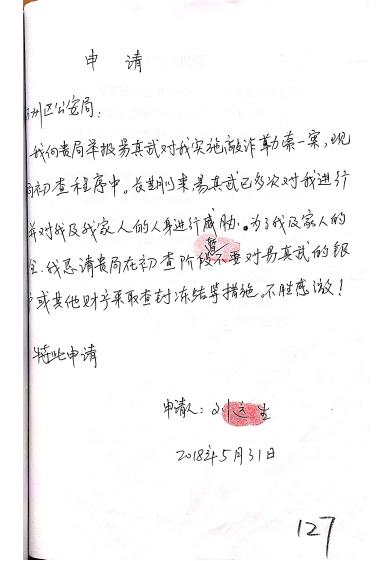 申 请
圳区公安局：
我向贵局举报易真武对我实施敲诈勒索一案，现
初查程序中。长期以来，易真武已多次对我进行
并对我及我家人的人身进行威胁。为了我及家人的
，我恳请贵局在初查阶段暂不要对易真武的银
或其他财产采取查封冻结等措施。不胜感激！
特此申请
申请人：刘 生
2018年5月31日
127